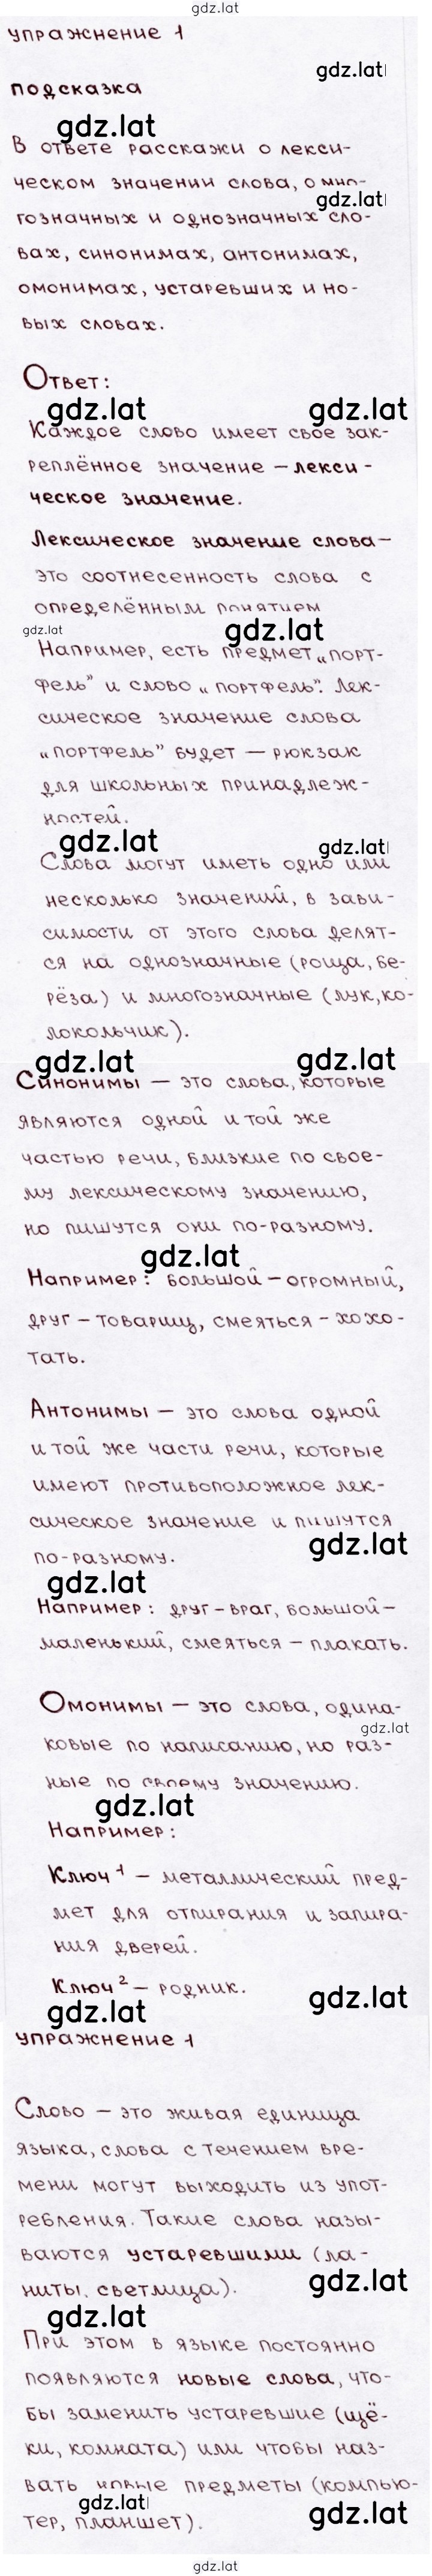 gdz.lat
упражнение 1
gdz.lat
подсказка
gdz.lat
В ответе расскажи о лекси-
ческом значении слова, о мно-
gdz.lat
гозначных и однозначных сло-
вах, синонимах, антонимах,
омонимах, устаревших и но-
вых словах.
Ответ:
gdz.lat gdz.lat
Каждое слово имеет свое зак-
реплённое значение – лекси-
ческое значение.
Лексическое значение слова –
это соотнесенность слова с
определённым понятием
gdz.lat gdz.lat
Например, есть предмет „порт-
фель” и слово „портфель”. Лек-
сическое значение слова
„портфель” будет – рюкзак
для школьных принадлеж-
ностей.
gdz.lat gdz.lat
Слова могут иметь одно или
несколько значений, в зави-
симости от этого слова делят-
ся на однозначные (роща, бе-
рёза) и многозначные (лук, ко-
локольчик).
gdz.lat gdz.lat
Синонимы – это слова, которые
являются одной и той же
частью речи, близкие по свое-
му лексическому значению,
но пишутся они по-разному.
gdz.lat
Например: большой – огромный,
друг – товарищ, смеяться – хохо-
тать.
Антонимы – это слова одной
и той же части речи, которые
имеют противоположное лек-
сическое значение и пишутся
gdz.lat
по-разному.
gdz.lat
Например: друг – враг, большой –
маленький, смеяться – плакать.
Омонимы – это слова, одина-
gdz.lat
ковые по написанию, но раз-
ные по своему значению.
gdz.lat
Например:
Ключ¹ – металлический пред-
мет для отпирания и запира-
ния дверей.
Ключ² – родник.
gdz.lat gdz.lat
упражнение 1
Слово – это живая единица
языка, слова с течением вре-
мени могут выходить из упот-
ребления. Такие слова назы-
ваются устаревшими (ла-
ниты, светлица).
gdz.lat
gdz.lat
При этом в языке постоянно
появляются новые слова, что-
бы заменить устаревшие (щё-
ки, комната) или чтобы наз-
вать новые предметы (компью-
gdz.lat gdz.lat
тер, планшет).
gdz.lat